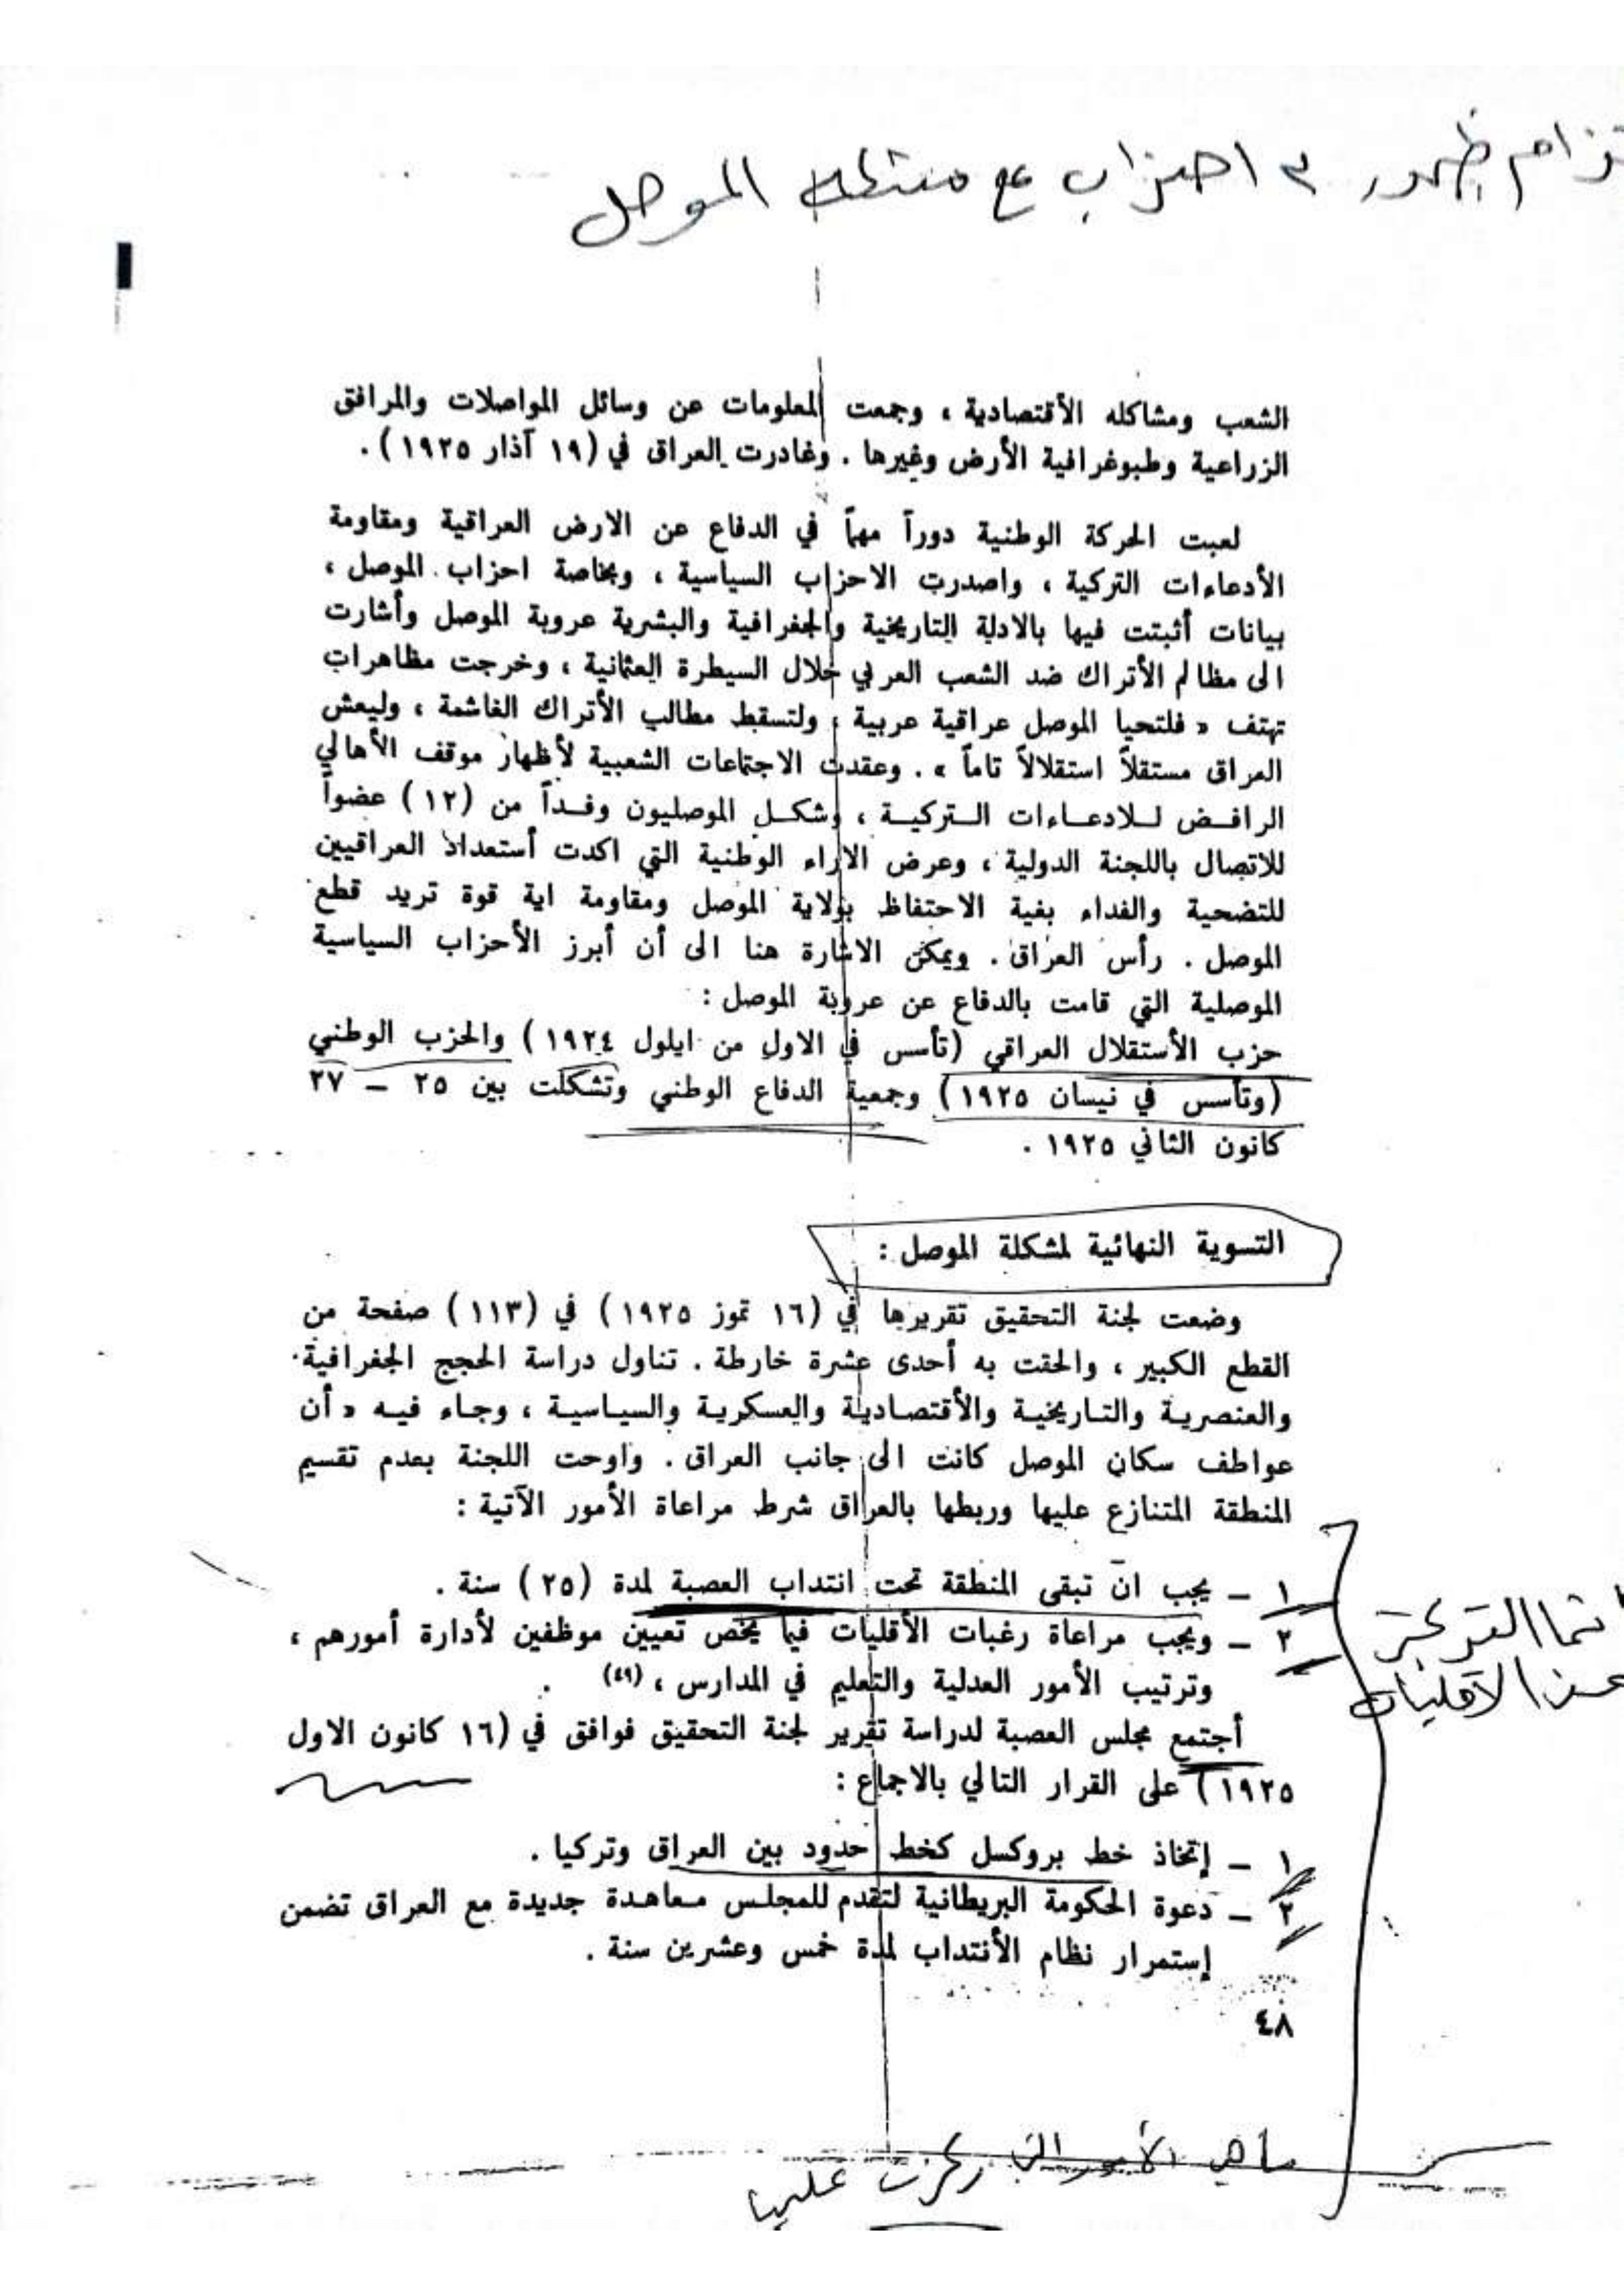 ظهور ٣ احزاب مع مشكلة الموصل
الشعب ومشاكله الأقتصادية ، وجمعت المعلومات عن وسائل المواصلات والمرافق
الزراعية وطبوغرافية الأرض وغيرها . وغادرت العراق في (١٩ آذار ١٩٢٥) .
لعبت الحركة الوطنية دوراً مهماً في الدفاع عن الارض العراقية ومقاومة
الأدعاءات التركية ، واصدرت الاحزاب السياسية ، وبخاصة احزاب الموصل ،
بيانات أثبتت فيها بالادلة التاريخية والجغرافية والبشرية عروبة الموصل وأشارت
الى مظالم الأتراك ضد الشعب العربي خلال السيطرة العثمانية ، وخرجت مظاهرات
تهتف « فلتحيا الموصل عراقية عربية ، ولتسقط مطالب الأتراك الغاشمة ، وليعش
العراق مستقلاً استقلالاً تاماً » . وعقدت الاجتماعات الشعبية لأظهار موقف الأهالي
الرافض للادعاءات التركية ، وشكل الموصليون وفداً من (١٢) عضواً
للاتصال باللجنة الدولية ، وعرض الاراء الوطنية التي اكدت أستعداد العراقيين
للتضحية والفداء بغية الاحتفاظ بولاية الموصل ومقاومة اية قوة تريد قطع
الموصل . رأس العراق . ويمكن الاشارة هنا الى أن أبرز الأحزاب السياسية
الموصلية التي قامت بالدفاع عن عروبة الموصل :
حزب الأستقلال العراقي (تأسس في الاول من ايلول ١٩٢٤) والحزب الوطني
(وتأسس في نيسان ١٩٢٥) وجمعية الدفاع الوطني وتشكلت بين ٢٥ – ٢٧
كانون الثاني ١٩٢٥ .
التسوية النهائية لمشكلة الموصل :
وضعت لجنة التحقيق تقريرها في (١٦ تموز ١٩٢٥) في (١١٣) صفحة من
القطع الكبير ، والحقت به أحدى عشرة خارطة . تناول دراسة الحجج الجغرافية
والعنصرية والتاريخية والأقتصادية والعسكرية والسياسية ، وجاء فيه « أن
عواطف سكان الموصل كانت الى جانب العراق . واوحت اللجنة بعدم تقسيم
المنطقة المتنازع عليها وربطها بالعراق شرط مراعاة الأمور الآتية :
١ – يجب ان تبقى المنطقة تحت انتداب العصبة لمدة (٢٥) سنة .
٢ – ويجب مراعاة رغبات الأقليات فيما يخص تعيين موظفين لأدارة أمورهم ،
وترتيب الأمور العدلية والتعليم في المدارس ، (٤٩)
الاقليات
أجتمع مجلس العصبة لدراسة تقرير لجنة التحقيق فوافق في (١٦ كانون الاول
١٩٢٥) على القرار التالي بالاجماع :
١ – إتخاذ خط بروكسل كخط حدود بين العراق وتركيا .
٢ – دعوة الحكومة البريطانية لتقدم للمجلس معاهدة جديدة مع العراق تضمن
إستمرار نظام الأنتداب لمدة خمس وعشرين سنة .
٤٨
ماهي الأمور التي ركزت عليها